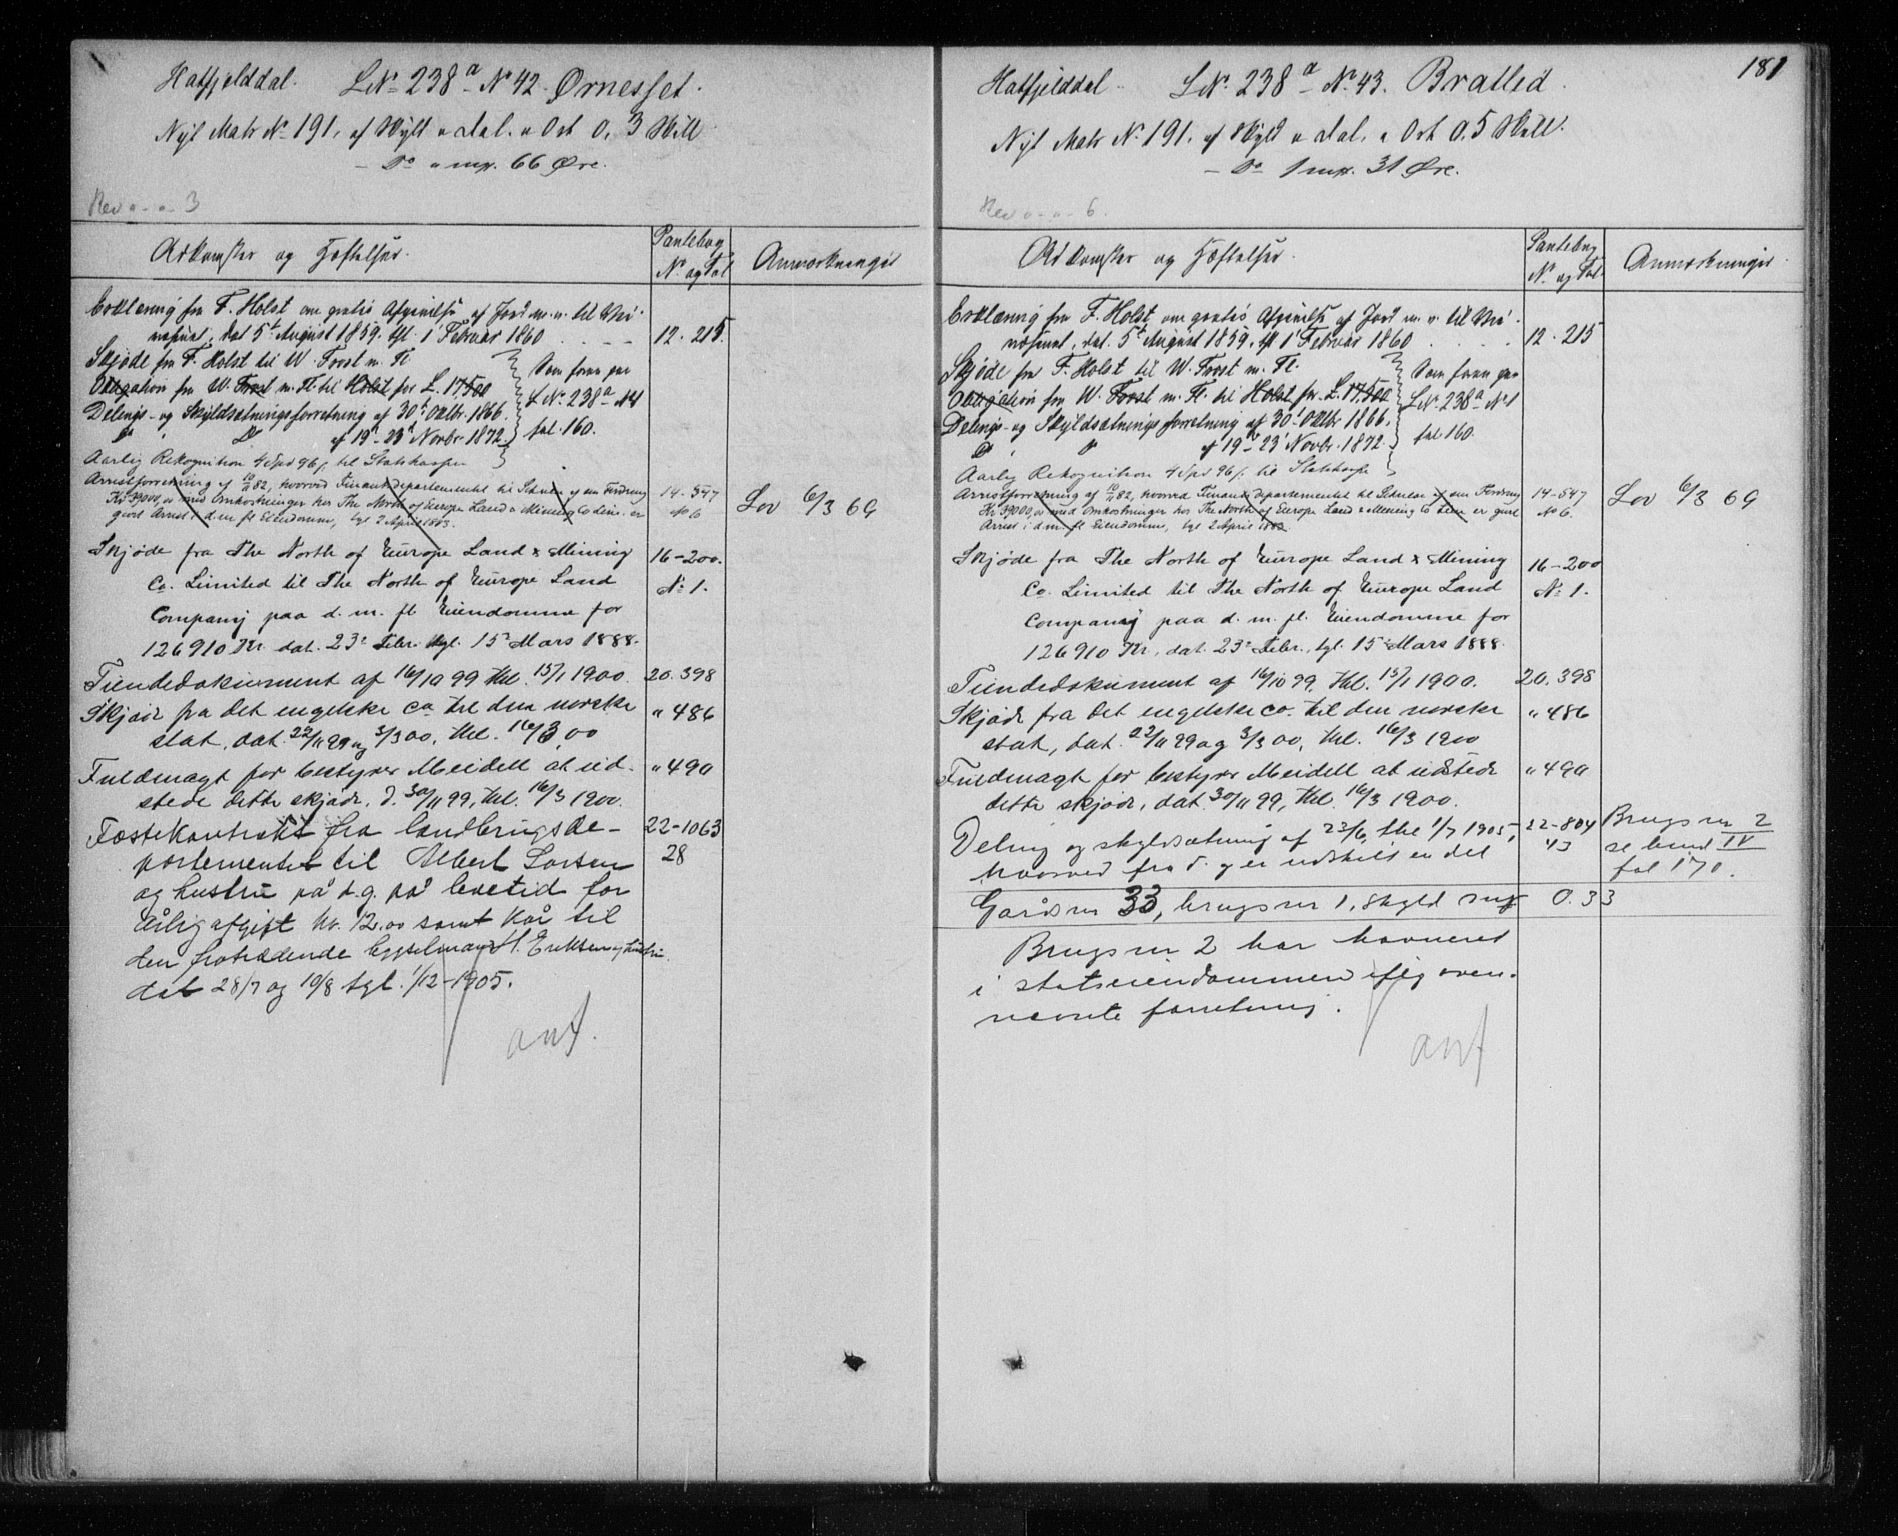 Hatfjelddal. LNo 238a No 42. Ørnesset.
Nyt Matr No 191, af Skyld " Dal. " Ort 0, 3 Skill
— Do " mrk. 66 Øre.
Rev " - " - 3
Adkomster og Hæftelser.
Pantebog
No og Fol
Anmærkninger
Erklæring fra F. Holst om gratis Afgivelse af Jord m. v. til
dat 5t August 1859. tgl. 1 Februar 1860
12. 215.
Skjøde fra F. Holst til W. Frost m. Fl.
Obligation fra W. Frost m. Fl. til Holst for £. 17,500
Delings- og Skyldsætningsforretning af 30t Oktbr. 1866.
Do Do af 19d - 23d Novbr 1872.
Som foran paa
L No. 238a No 1
fol. 160.
Aarlig Rekognition 4 Spd 96 s. til Statskassen
Arrestforretning af 10/11 82, hvorved Finantsdepartementet til Sikkerhed af en Fordring
Kr. 39000, o med Omkostninger hos The North of Europe Land & Mining Co Lim. er
gjort Arrest i d. m. fl. Eiendomme, tgl 2 April 1883.
14-547
No 6
Lov 6/3 69
Skjøde fra The North of Europe Land & Mining
Co. Limited til The North of Europe Land
Company paa d. m. fl. Eiendomme for
126910 Kr. dat. 23 Febr. tgl. 15 Mars 1888.
16-200.
No 1.
Tiendedokument af 16/10 99 thl. 15/1 1900.
20. 398
Skjøde fra det engelske co. til den norske
stat, dat. 22/11 99 og 3/3 00, thl. 16/3 00
" 486
Fuldmagt for bestyrer Meidell at ud-
stede dette skjøde, d. 30/11 99, thl. 16/3 1900.
" 490
Fæstekontrakt fra landbrugsde-
partementet til Albert Larsen
og hustru på d. g. på levetid for
årlig afgift kr. 12.00 samt kår til
den fratrædende bygselmand H. Eriksen og hustru.
dat 28/7 og 19/8 tgl. 1/12-1905.
22-1063
28
anf.
181
Hatfjelddal. LNo. 238a No. 43. Bratlid.
Nyt Matr No. 191. af Skyld " Dal. " Ort 0. 5 Skill.
— Do 1 mrk. 31 Øre.
Rev " - " - 6.
Adkomster og Hæftelser.
Pantebog
No. og Fol.
Anmærkninger
Erklæring fra F. Holst om gratis Afgivelse af Jord m. v. til
dat. 5t August 1859. tgl 1 Februar 1860
12. 215
Skjøde fra F. Holst til W. Frost m. Fl.
Obligation fra W. Frost m. Fl. til Holst for £. 17,500
Delings- og Skyldsætningsforretning af 30t Oktbr 1866.
Do Do af 19d - 23d Novbr. 1872.
Som foran paa
L No. 238a No 1
fol 160.
Aarlig Rekognition 4 Spd 96 s. til Statskassen
Arrestforretning af 10/11 82, hvorved Finantsdepartementet til Sikkerhed af en Fordring
Kr 39000, o med Omkostninger hos The North of Europe Land & Mining Co Lim er gjort
Arrest i d. m. fl Eiendomme, tgl 2 April 1883.
14-547
No 6.
Lov 6/3 69
Skjøde fra The North of Europe Land & Mining
Co. Limited til The North of Europe Land
Company paa d. m. fl. Eiendomme for
126910 Kr, dat. 23 Febr., tgl. 15 Mars 1888.
16-200
No 1.
Tiendedokument af 16/10 99, thl. 15/1 1900.
20. 398
Skjøde fra det engelske co. til den norske
stat, dat. 22/11 99 og 3/3 00, thl. 16/3 1900
" 486
Fuldmagt for bestyrer Meidell at udstede
dette skjøde, dat. 30/11 99, thl. 16/3 1900.
" 490
Deling og skyldsætning af 22/6, thl 1/7 1905,
hvorved fra d. g er udskilt en del
22-804
43
Brugs nr 2
se bind IV
fol 170.
Gårds nr 33, brugs nr 1, skyld mrk 0.33
Brugs nr 2 har havneret
i statseiendommen iflg oven-
nævnte forretning.
anf